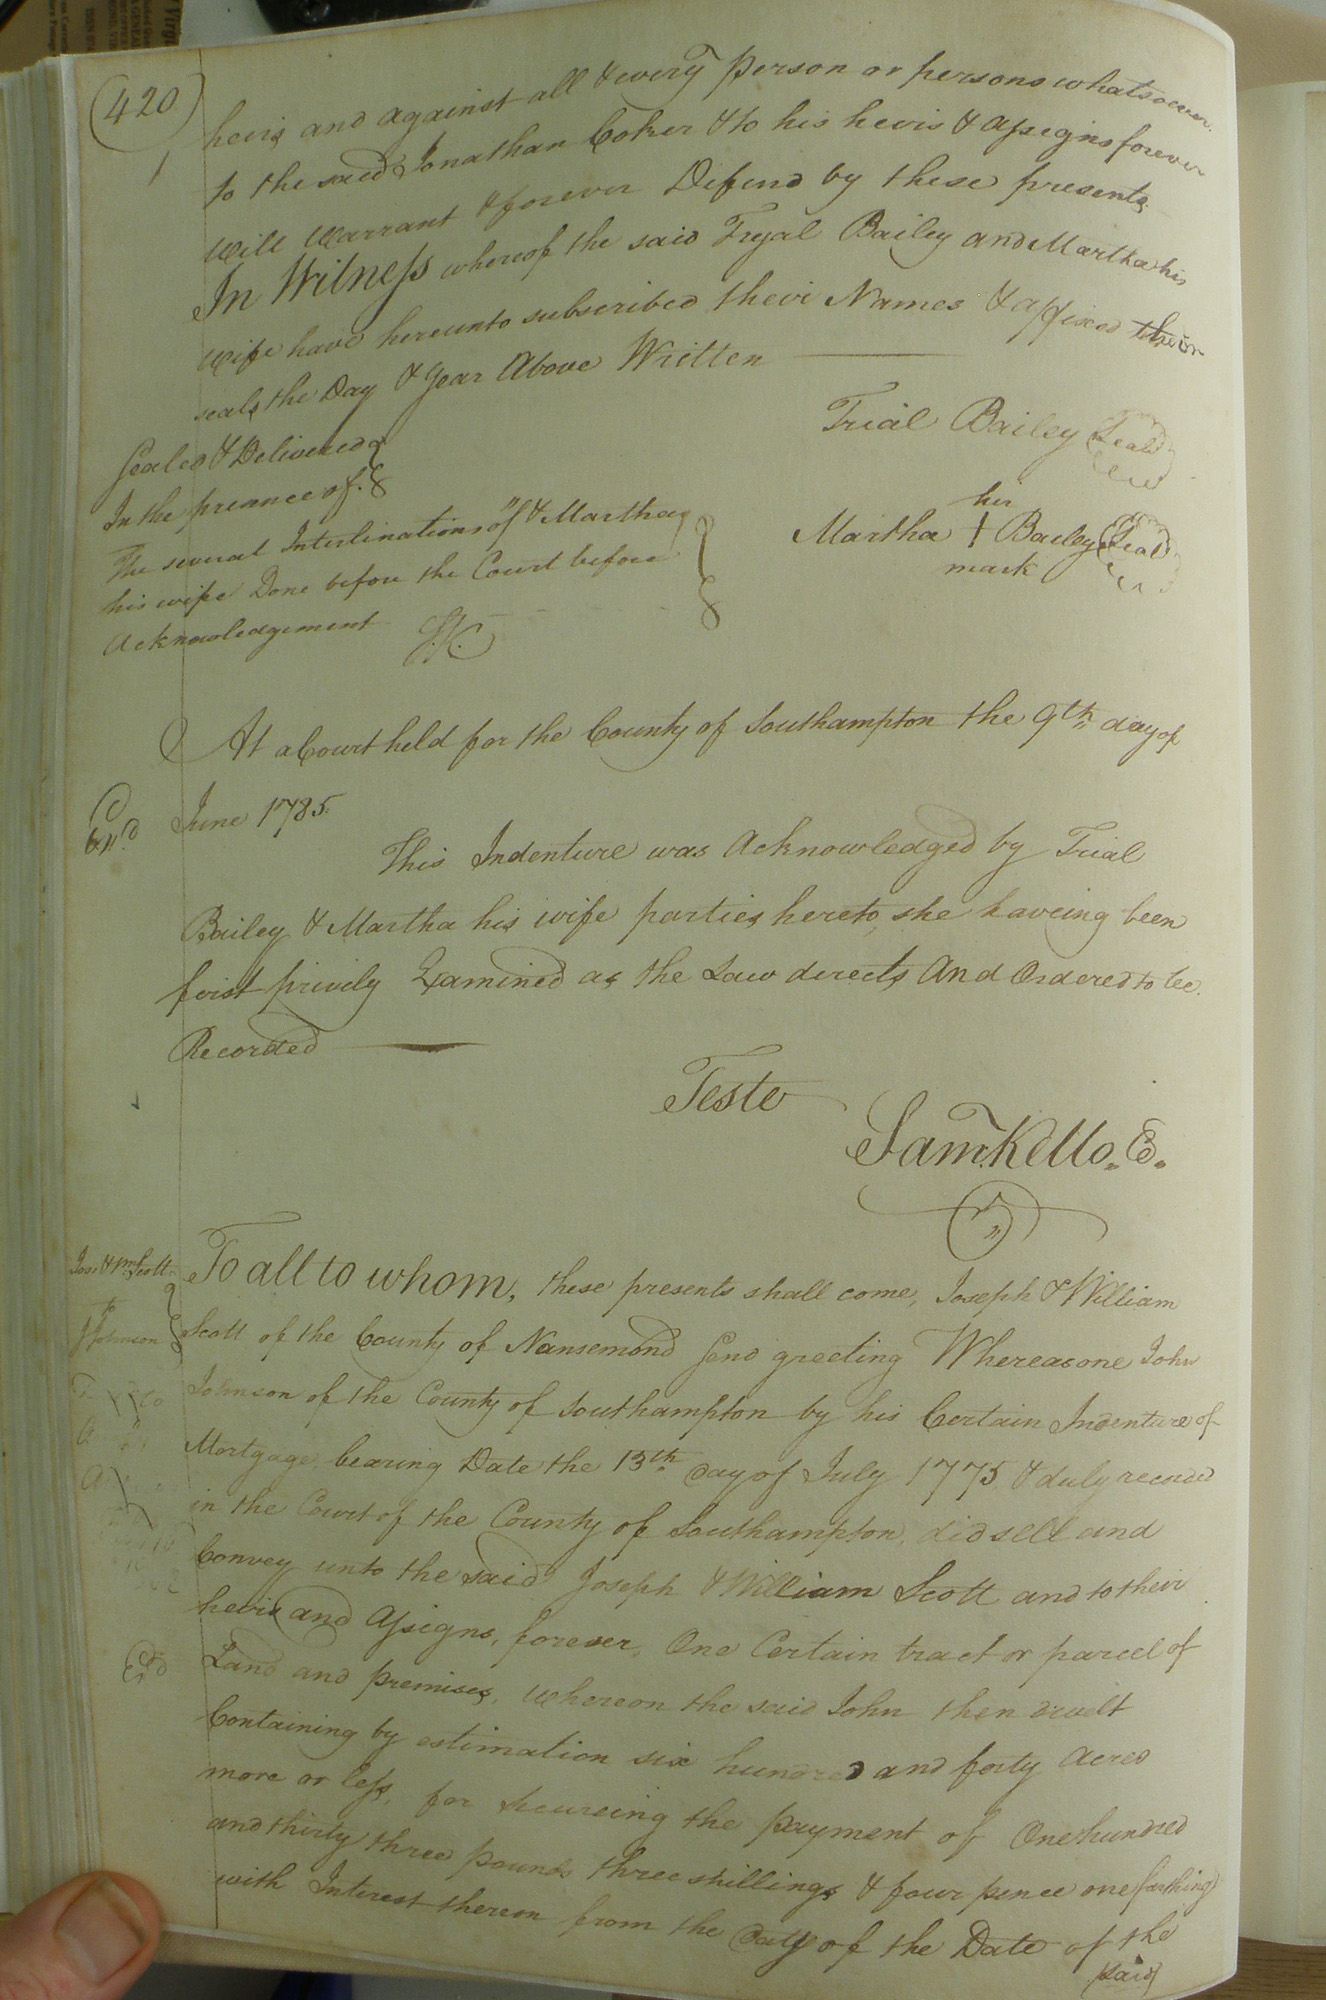 (420)
heirs and against all & every person or persons whatsoever
to the said Jonathan Coker & to his heirs & assigns forever
will warrant & forever Defend by these presents.
In Witness whereof the said Tryal Bailey and Martha his
wife have hereunto subscribed their Names & affixed their
seals the Day & Year Above Written
Trial Bailey (Seal)
Sealed & Delivered
In the presence of.
The several Interlinations "of & Martha
his wife Done before the Court before
Acknowledgement
S.K.C
her
Martha + Bailey (Seal)
mark
At a Court held for the County of Southampton the 9th day of
June 1785.
Exd
This Indenture was Acknowledged by Trial
Bailey & Martha his wife parties hereto, she haveing been
first privily Examined as the Law directs And Ordered to be
Recorded
Teste
Saml. Kello. C.
Jos. & Wm. Scott
To
J Johnson
To all to whom, these presents shall come, Joseph & William
Scott of the County of Nansemond Send greeting Whereas one John
Johnson of the County of Southampton by his Certain Indenture of
Mortgage, bearing Date the 13th Day of July 1775 & duly recorded
in the Court of the County of Southampton, did sell and
Convey unto the said Joseph & William Scott and to their
heirs and Assigns, forever, One Certain tract or parcel of
Exd
Land and premises, whereon the said John then dwelt
Containing by estimation six hundred and forty Acres
more or less, for secureing the payment of One hundred
and thirty three pounds three shillings & four pence one farthing
with Interest thereon from the Day of the Date of the
said